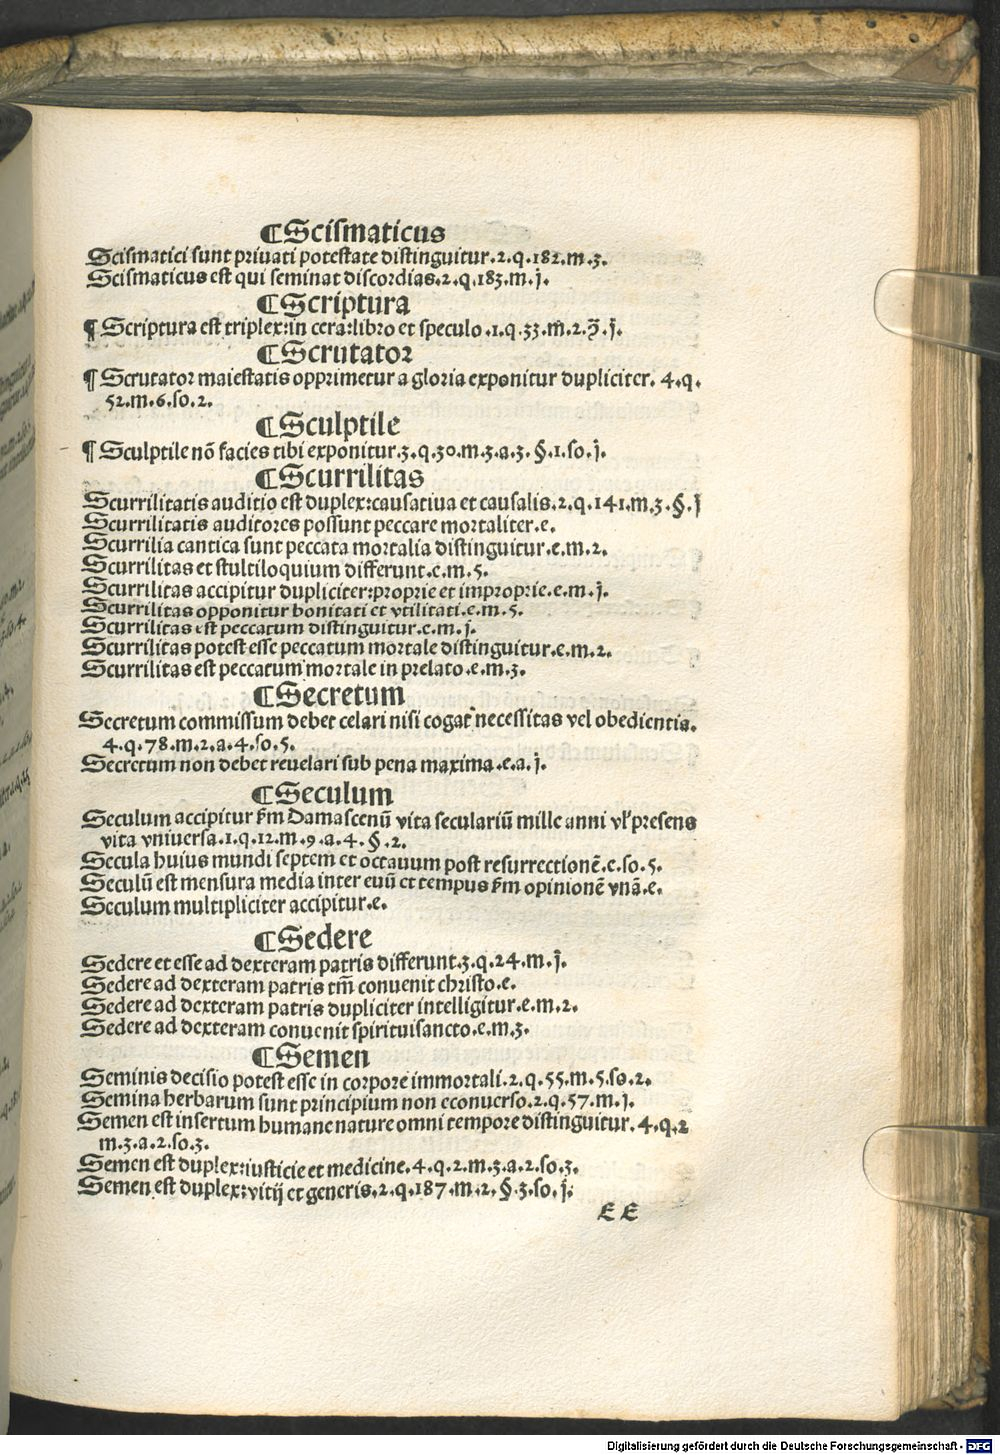 ¶Scismaticus
Scismatici sunt priuati potestate distinguitur.2.q.182.m.3.
Scismaticus est qui seminat discordias.2.q.183.m.j.
¶Scriptura
¶ Scriptura est triplex:in cera:libro et speculo.1.q.33.m̄.2.ꝯ̄.j.
¶Scrutator
¶ Scrutator maiestatis opprimetur a gloria exponitur dupliciter. 4.q.
52.m.6.so.2.
¶Sculptile
¶ Sculptile nō facies tibi exponitur.3.q.30.m.3.a.3.§.1.so.j.
¶Scurrilitas
Scurrilitatis auditio est duplex:causatiua et causalis.2.q.141.m.3.§.j
Scurrilitatis auditores possunt peccare mortaliter.e.
Scurrilia cantica sunt peccata mortalia distinguitur.e.m.2.
Scurrilitas et stultiloquium differunt.e.m.5.
Scurrilitas accipitur dupliciter:proprie et improprie.e.m.j.
Scurrilitas opponitur bonitati et vtilitati.e.m.5.
Scurrilitas est peccatum distinguitur.e.m.j.
Scurrilitas potest esse peccatum mortale distinguitur.e.m.2.
Scurrilitas est peccatum mortale in prelato.e.m.3.
¶Secretum
Secretum commissum debet celari nisi cogat necessitas vel obedientia.
4.q.78.m.2.a.4.so.5.
Secretum non debet reuelari sub pena maxima.e.a.j.
¶Seculum
Seculum accipitur ẜm Damascenū vita seculariū mille anni vł presens
vita vniuersa.1.q.12.m.9.a.4.§.2.
Secula huius mundi septem et octauum post resurrectionē.e.so.5.
Seculū est mensura media inter euū et tempus ẜm opinionē vnā.e.
Seculum multipliciter accipitur.e.
¶Sedere
Sedere et esse ad dexteram patris differunt.3.q.24.m.j.
Sedere ad dexteram patris tm̄ conuenit christo.e.
Sedere ad dexteram patris dupliciter intelligitur.e.m.2.
Sedere ad dexteram conuenit spirituisancto.e.m.3.
¶Semen
Seminis decisio potest esse in corpore immortali.2.q.55.m.5.so.2.
Semina herbarum sunt principium non econuerso.2.q.57.m.j.
Semen est insertum humane nature omni tempore distinguitur. 4.q.2
m.3.a.2.so.3.
Semen est duplex:iusticie et medicine.4.q.2.m.3.a.2.so.3.
Semen est duplex:vitij et generis.2.q.187.m.2.§.3.so.j.
EE
Digitalisierung gefördert durch die Deutsche Forschungsgemeinschaft - DFG